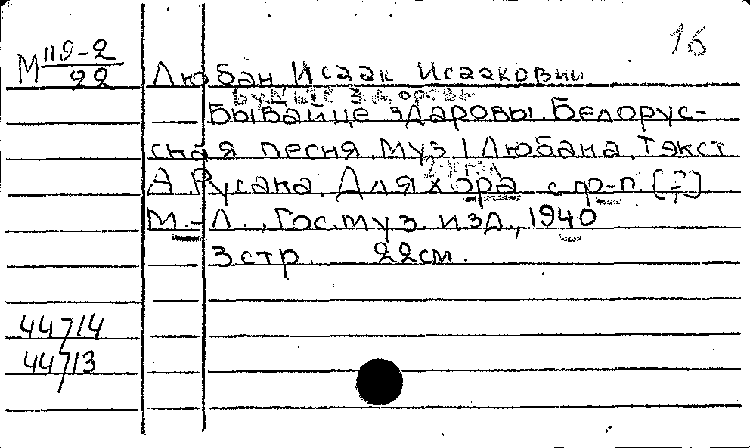 16
М 119-2
22
Любан Исаак Исаакович
Будьте здоровы
Бывайце здаровы. Белорус-
ская песня. Муз. І Любана. Тэкст
А. Русака. Для хора с ф-п. [?]
М.-Л., Гос. муз. изд., 1940
3 стр. 22см.
44714
44713